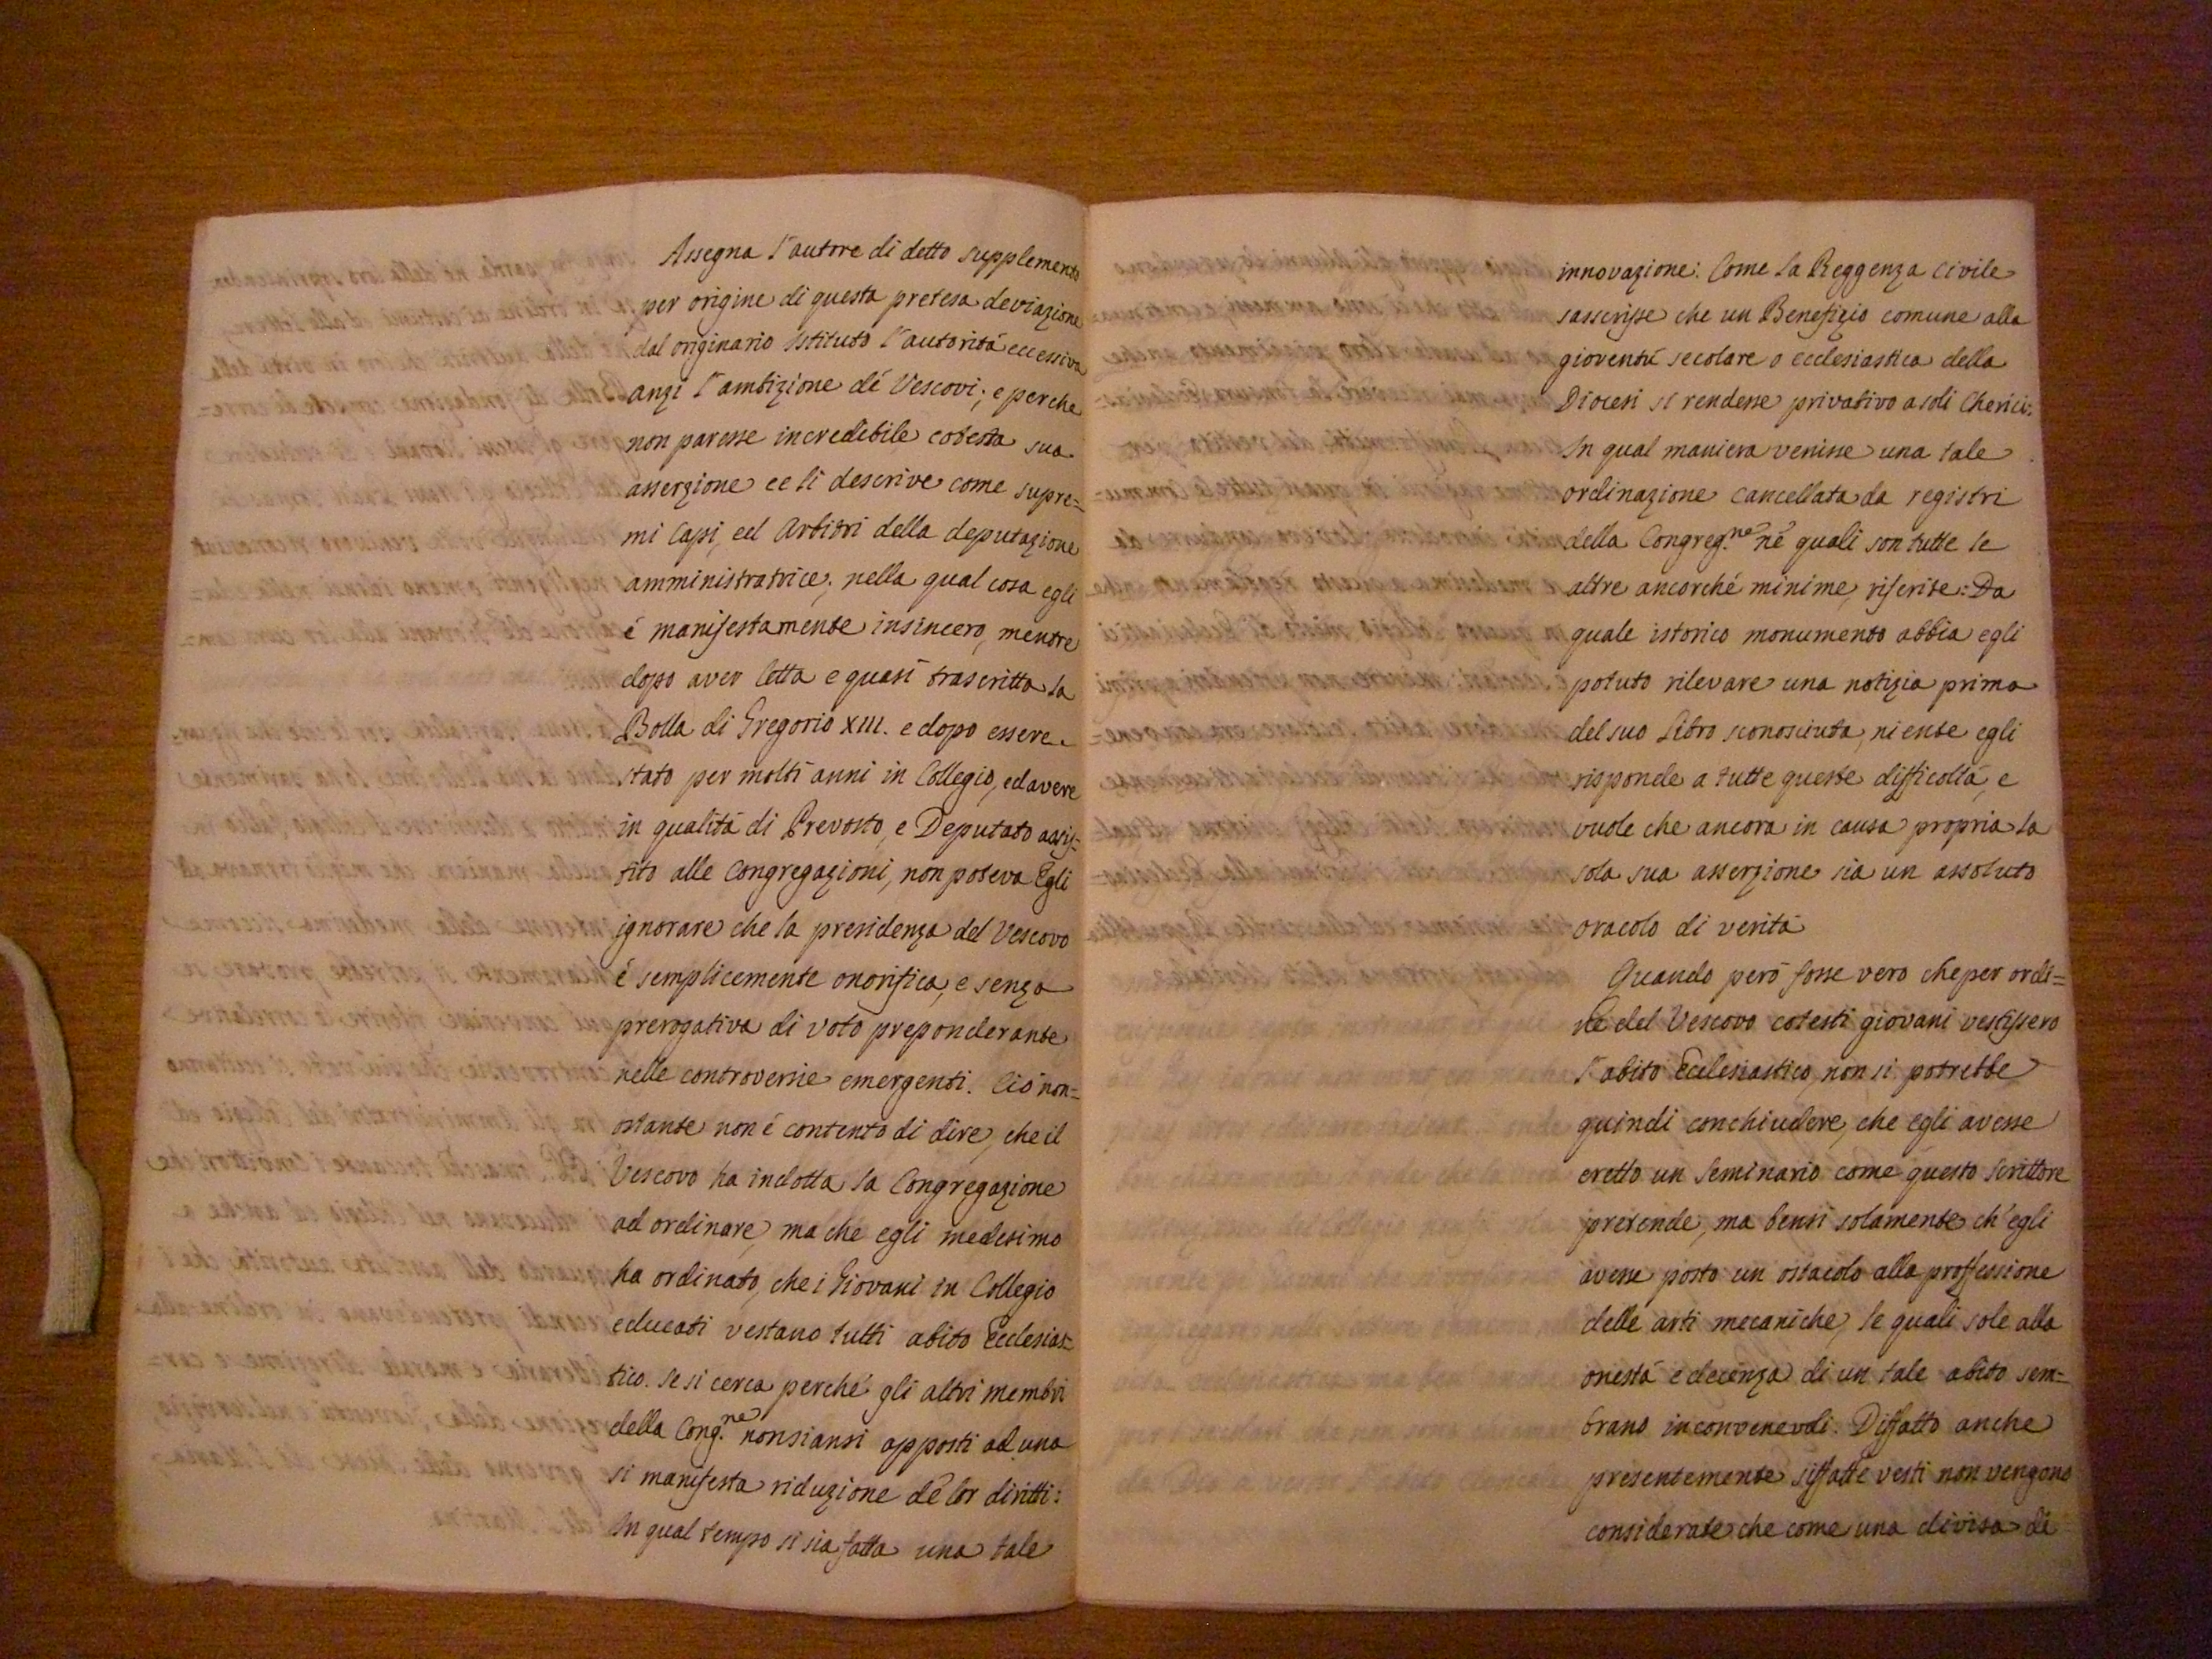 Assegna l'autore di detto supplemento
per origine di questa pretesa deviazione
dal originario Istituto l'autoritá eccessiva
anzi l'ambizione dé Vescovi; e perche
non paresse incredibile cotesta sua
asserzione ce li descrive come supre=
mi Capi, ed Arbitri della deputazione
amministratrice; nella qual cosa egli
é manifestamente insincero, mentre
dopo aver letta e quasi trascritta la
Bolla di Gregorio XIII. e dopo essere
stato per molti anni in Collegio, ed avere
in qualitá di Prevosto, e Deputato assis=
tito alle Congregazioni, non poteva Egli
ignorare che la presidenza del Vescovo
é semplicemente onorifica, e senza
prerogativa di voto preponderante
nelle controversie emergenti. Ció non=
ostante non é contento di dire, che il
Vescovo ha indotta la Congregazione
ad ordinare, ma che egli medesimo
ha ordinato, che i Giovani in Collegio
educati vestano tutti abito Ecclesias=
tico. Se si cerca perché gli altri membri
della Cong.ne nonsiansi opposti ad una
si manifesta riduzione dé lor diritti:
In qual tempo si sia fatta una tale
innovazione: Come la Reggenza Civile
sascrisse che un Benefizio comune alla
gioventú secolare o ecclesiastica della
Diocesi si rendesse privativo a soli Cherici:
In qual maniera venisse una tale
ordinazione cancellata da registri
della Congreg.ne né quali son tutte le
altre ancorché minime, riferite: Da
quale istorico monumento abbia egli
potuto rilevare una notizia prima
del suo Libro sconosciuta, niente egli
risponde a tutte queste difficoltá, e
vuole che ancora in causa propria la
sola sua asserzione sia un assoluto
oracolo di veritá
Quando peró fosse vero che per ordi=
ne del Vescovo cotesti giovani vestissero
l'abito Ecclesiastico, non si potrebbe
quindi conchiudere, che egli avesse
eretto un Seminario come questo scrittore
pretende, ma bensi solamente ch'egli
avesse posto un ostacolo alla proffessione
delle arti mecaniche, le quali sole alla
onestá e decenza di un tale abito sem=
brano inconvenevoli. Diffatto anche
presentemente siffatte vesti non vengono
considerate che come una divisa di